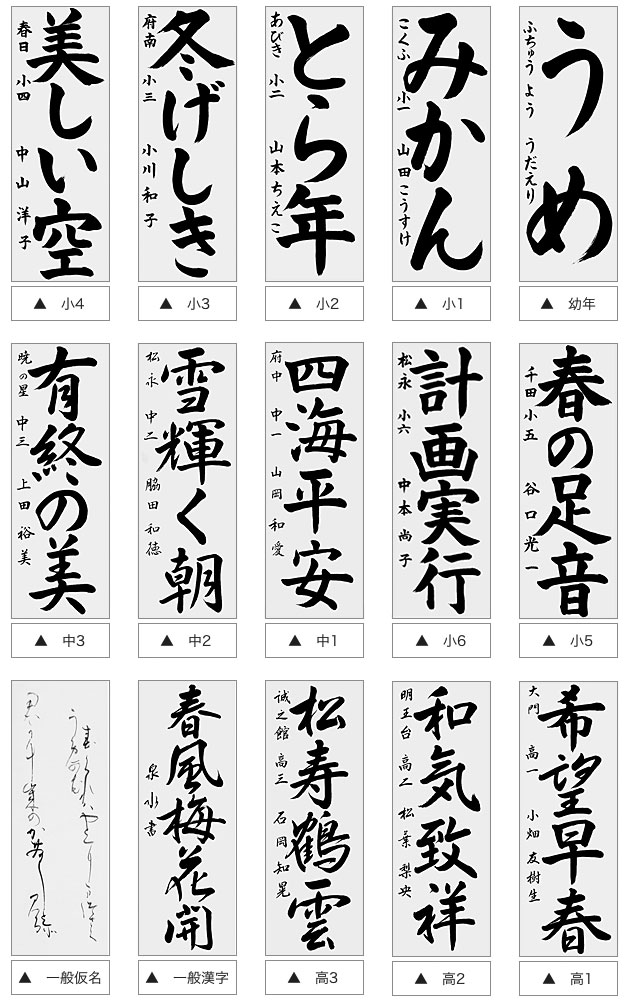 うめ
ふちゅう よう うだえり
▲ 幼年
みかん
こくふ 小一 山田こうすけ
▲ 小1
とら年
あびき 小二 山本ちえこ
▲ 小2
冬げしき
府南 小三 小川和子
▲ 小3
美しい空
春日 小四 中山洋子
▲ 小4
春の足音
千田 小五 谷口光一
▲ 小5
計画実行
松永 小六 中本尚子
▲ 小6
四海平安
府中 中一 山岡和愛
▲ 中1
雪輝く朝
松永 中二 脇田和徳
▲ 中2
有終の美
暁の星 中三 上田裕美
▲ 中3
希望早春
大門 高一 小畑友樹生
▲ 高1
和気致祥
明王台 高二 松葉梨央
▲ 高2
松寿鶴雲
誠之館 高三 石岡知晃
▲ 高3
春風梅花開
泉水書
▲ 一般漢字
▲ 一般仮名